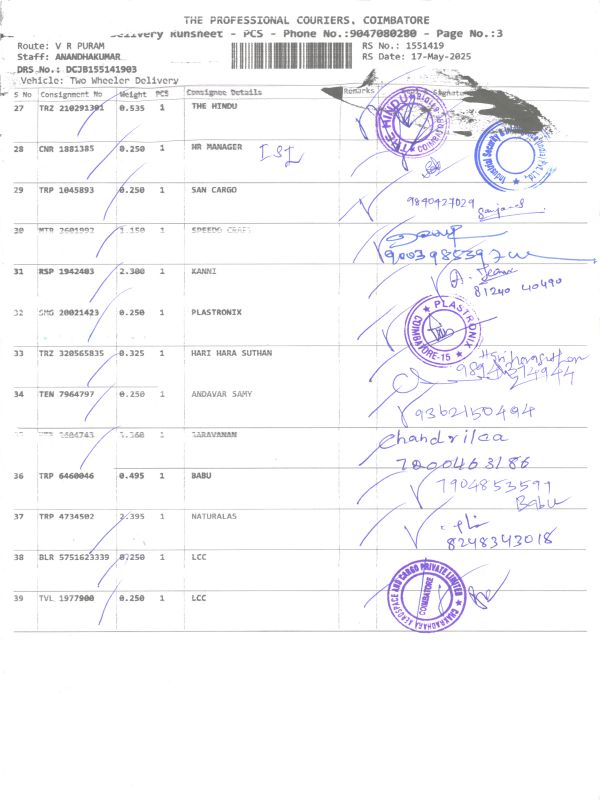 THE PROFESSIONAL COURIERS, COIMBATORE
Delivery Runsheet - PCS - Phone No.:9047080280 - Page No.:3
Route: V R PURAM RS No.: 1551419
Staff: ANANDHAKUMAR RS Date: 17-May-2025
DRS No.: DCJB155141903
Vehicle: Two Wheeler Delivery
S No Consignment No Weight PCS Consignee Details Remarks
27 TRZ 210291301 0.535 1 THE HINDU
THE HINDU COIMBATORE
28 CNR 1881385 0.250 1 HR MANAGER ISL
Industrial Security & Pvt. Ltd.
29 TRP 1045893 0.250 1 SAN CARGO
9840427029
30 MTR 2601992 1.150 1 SPEEDO CRAFT
31 RSP 1942403 2.300 1 KANNI
81240 40490
32 SMG 20021423 0.250 1 PLASTRONIX
PLASTRONIX COIMBATORE-15
33 TRZ 320565835 0.325 1 HARI HARA SUTHAN
34 TEN 7964797 0.250 1 ANDAVAR SAMY
9362150494
1 SARAVANAN
Chandrilca
7200463186
36 TRP 6460046 0.495 1 BABU
7904853591
Babu
37 TRP 4734502 2.395 1 NATURALAS
8248343018
38 BLR 5751623339 0.250 1 LCC
CHAKRADHARA AEROSPACE AND CARGO PRIVATE LIMITED
COIMBATORE
39 TVL 1977900 0.250 1 LCC